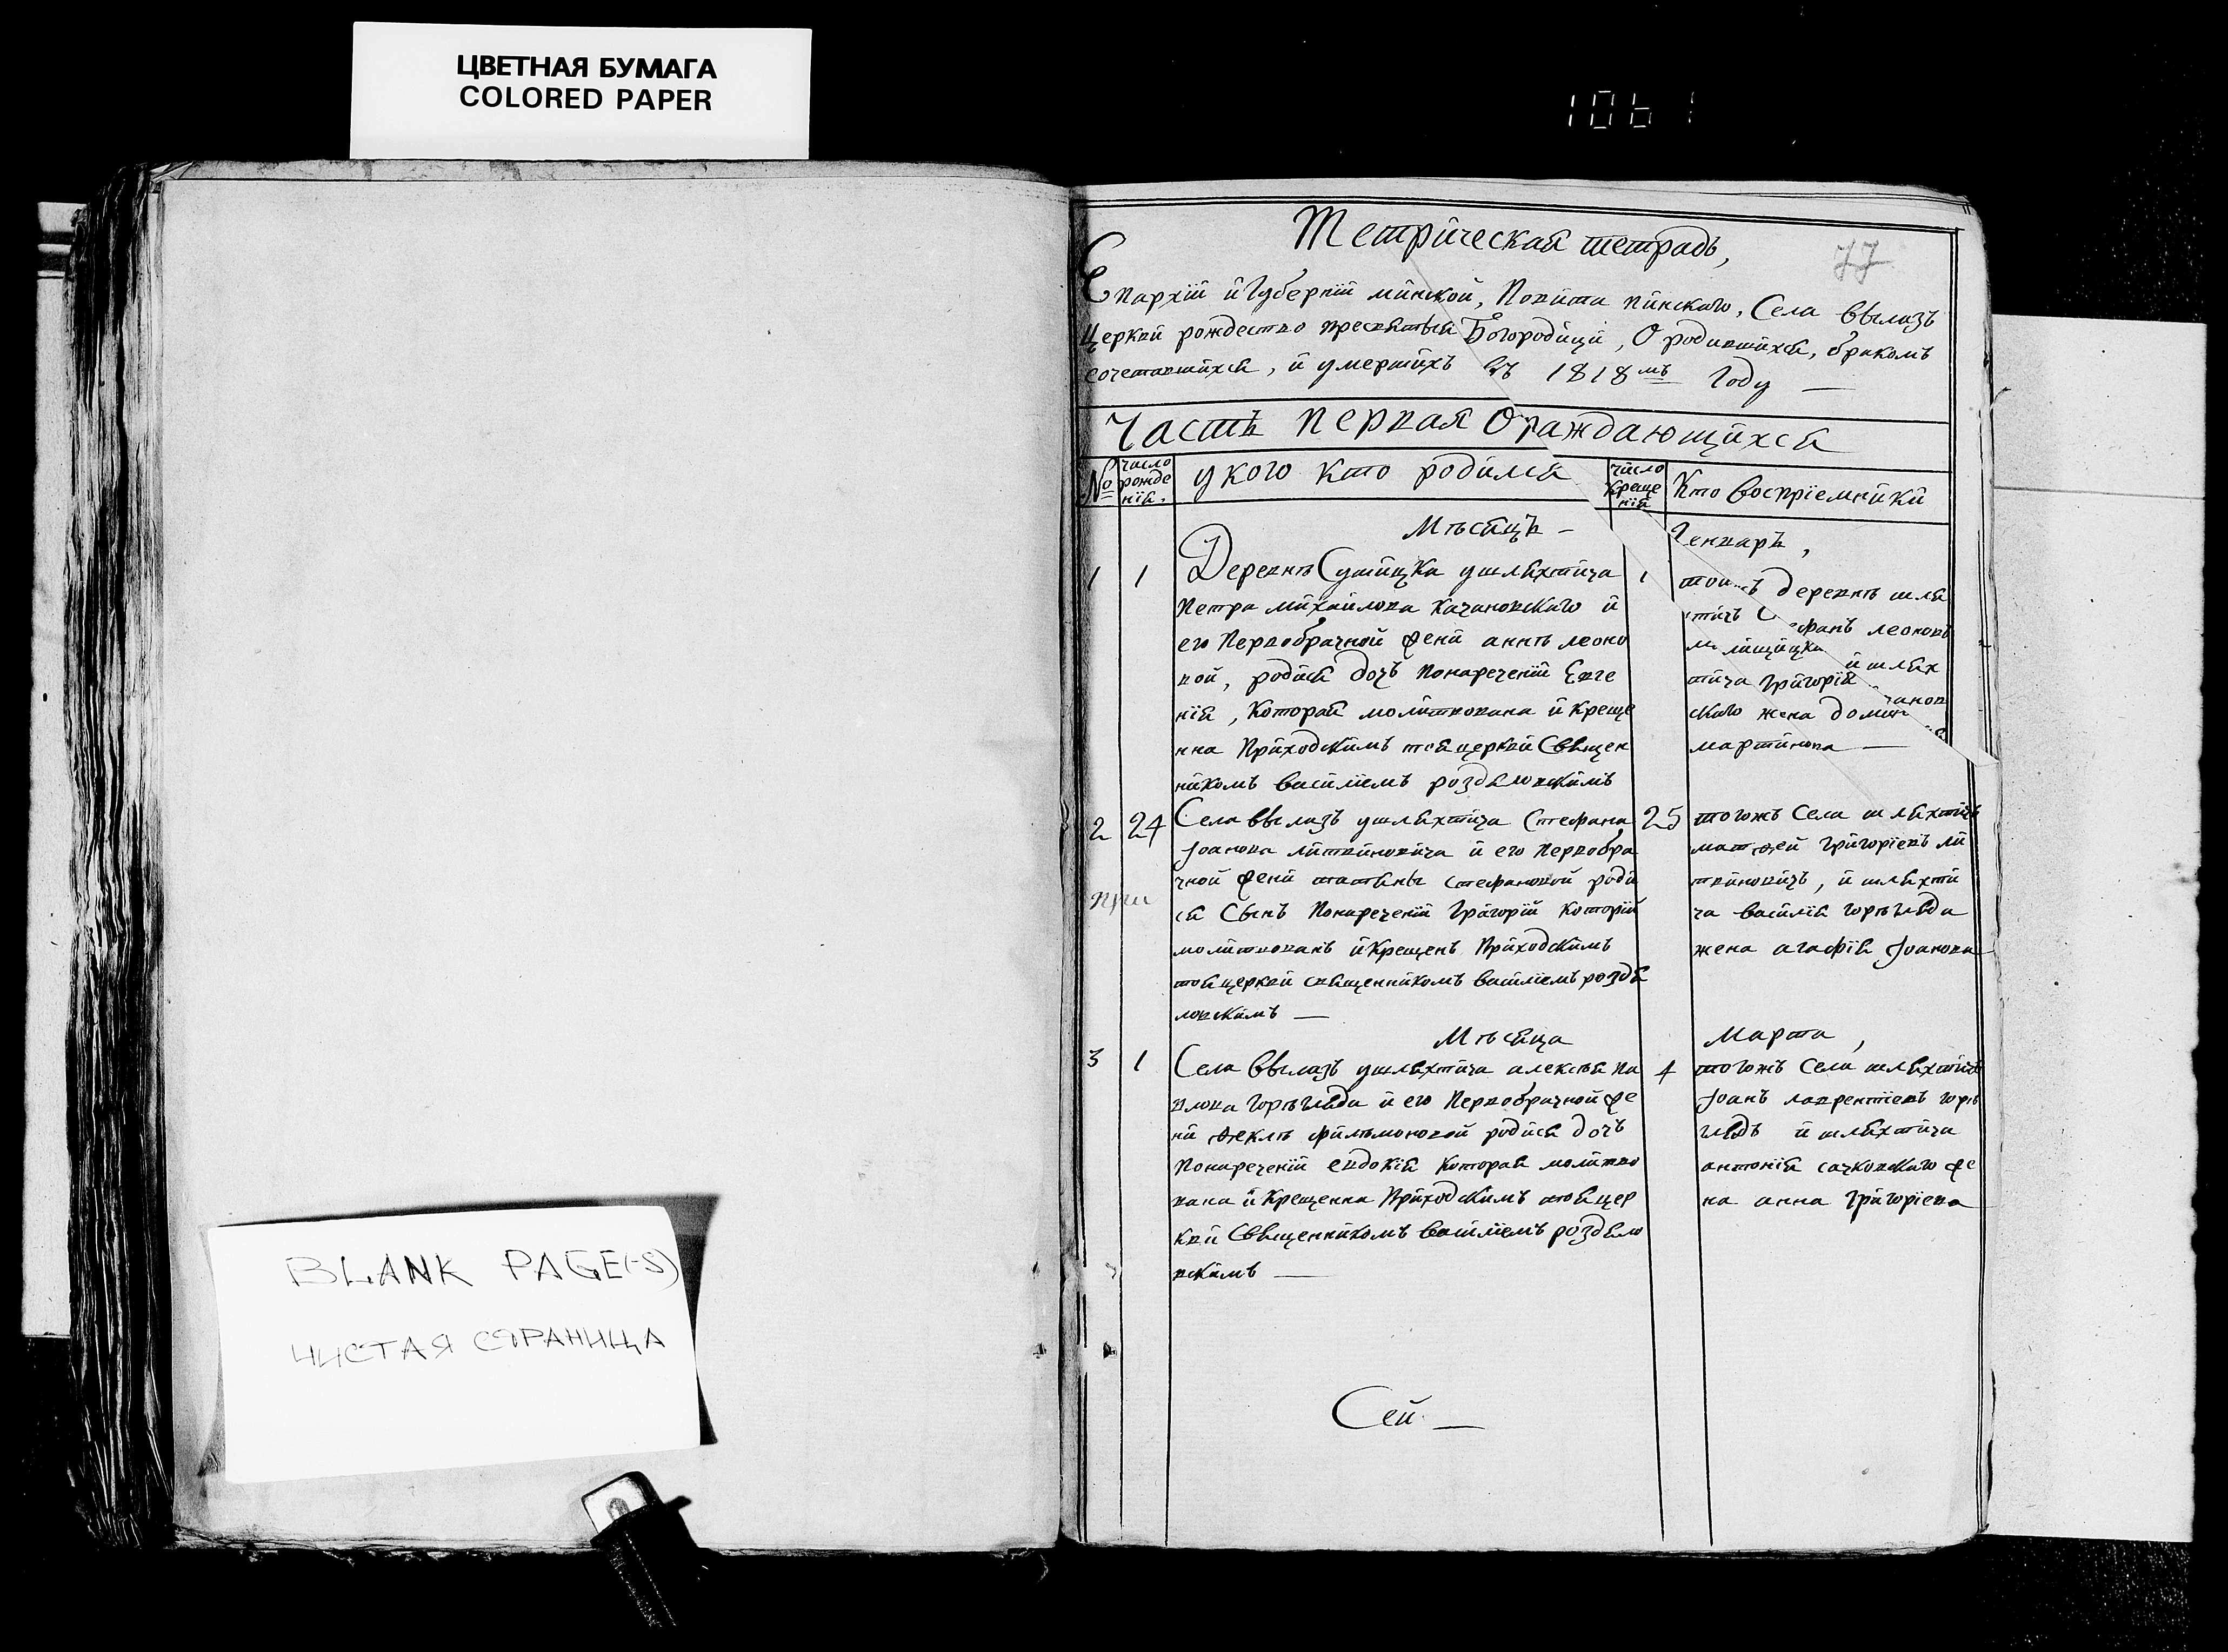 ЦВЕТНАЯ БУМАГА
COLORED PAPER
1061
Метрическая тетрадь,
77
Епархіи и Губерніи минской, Повѣта пинского, Села ввылазъ
Церкви рождество пресвятыя Богородици, О родившихся, бракомъ
сочетавшихся, и умершихъ въ 1818мъ Году —
Часть первая О раждающихся
№ число рожденія. у кого кто родился число крещенія Кто восприемники
Мѣсяцъ – Генваръ,
1 1 Деревнѣ Сушицка ушляхтича
Петра михайлова качановского и
его Первобрачной жени аннѣ леоно
вой, родися дочъ понареченіи Евге
нія, которая молитвована и креще
нна Приходскимъ тоя церкви Священ
никомъ василіемъ роздяловскимъ
1 деревнѣ шля
леоновъ
и шлях
тича григорія
ского жена
мартинова —
2 24 Села ввылазъ ушляхтича Стефана
Јоанова литвиновича и его первобра
чной жени татяны стефановой роди
ся Сынъ Понареченіи Григорій которій
молитвованъ и крещенъ Приходскимъ
тоя церкви священникомъ василіемъ роздя
ловскимъ —
при
25 тогожъ Села шляхтичъ
матфей григоріевъ ли
твиновичъ, и шляхти
ча василія горѣгляда
жена агафія Јоанова
Мѣсяца Марта,
3 1 Села ввылазъ ушляхтича алексѣя па
влова горѣгляда и его Первобрачной же
ни феклѣ филѣмоновой родися дочъ
понареченіи евдокія которая молитво
вана и крещенна Приходскимъ тоя цер
кви Священникомъ василіемъ роздяло
вскимъ —
4 тогожъ Села шляхтичъ
Јоанъ лаврентіевъ горѣ
глядъ и шляхтича
антонія сачковского же
на анна григоріева
Сей —
BLANK PAGE(-S)
ЧИСТАЯ СТРАНИЦА